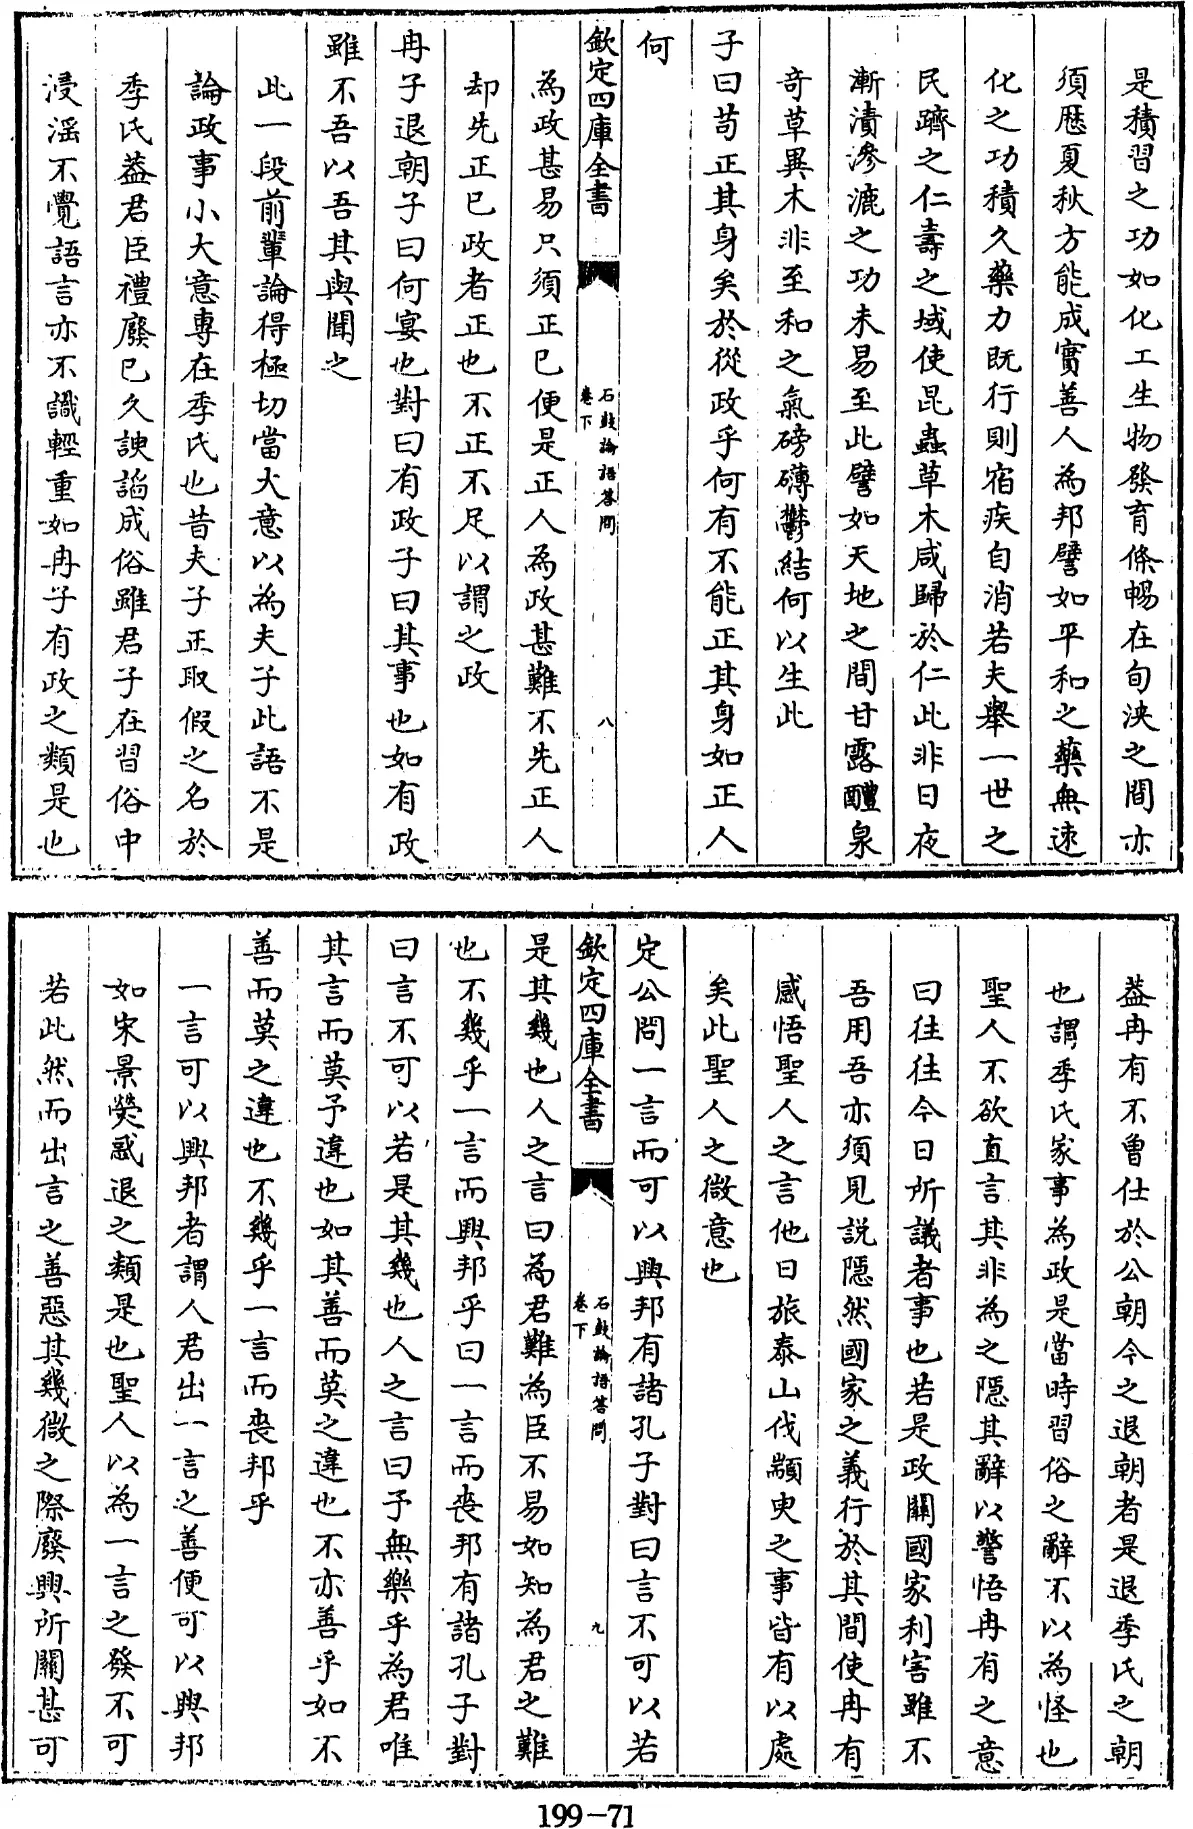 是積習之功如化工生物發育條暢在旬浹之間亦
須歷夏秋方能成實善人為邦譬如平和之藥無速
化之功積久藥力既行則宿疾自消若夫舉一世之
民躋之仁壽之域使昆蟲草木咸歸於仁此非日夜
漸漬滲漉之功未易至此譬如天地之間甘露醴泉
奇草異木非至和之氣磅礴鬱結何以生此
子曰苟正其身矣於從政乎何有不能正其身如正人
何
欽定四庫全書
石鼓論語荅問
卷下
八
為政甚易只須正已便是正人為政甚難不先正人
却先正已政者正也不正不足以謂之政
冉子退朝子曰何宴也對曰有政子曰其事也如有政
雖不吾以吾其與聞之
此一段前輩論得極切當大意以為夫子此語不是
論政事小大意專在季氏也昔夫子正取假之名於
季氏葢君臣禮廢已久諛謟成俗雖君子在習俗中
浸滛不覺語言亦不識輕重如冉子有政之類是也
葢冉有不曽仕於公朝今之退朝者是退季氏之朝
也謂季氏家事為政是當時習俗之辭不以為怪也
聖人不欲直言其非為之隱其辭以警悟冉有之意
曰徃徃今日所議者事也若是政關國家利害雖不
吾用吾亦須見説隠然國家之義行於其間使冉有
感悟聖人之言他日旅泰山伐顓臾之事皆有以處
矣此聖人之微意也
定公問一言而可以興邦有諸孔子對曰言不可以若
欽定四庫全書
石鼓論語荅問
卷下
九
是其幾也人之言曰為君難為臣不易如知為君之難
也不幾乎一言而興邦乎曰一言而喪邦有諸孔子對
曰言不可以若是其幾也人之言曰予無樂乎為君唯
其言而莫予違也如其善而莫之違也不亦善乎如不
善而莫之違也不幾乎一言而喪邦乎
一言可以興邦者謂人君出一言之善便可以興邦
如宋景熒惑退之類是也聖人以為一言之發不可
若此然而出言之善惡其幾微之際廢興所關甚可
199-71